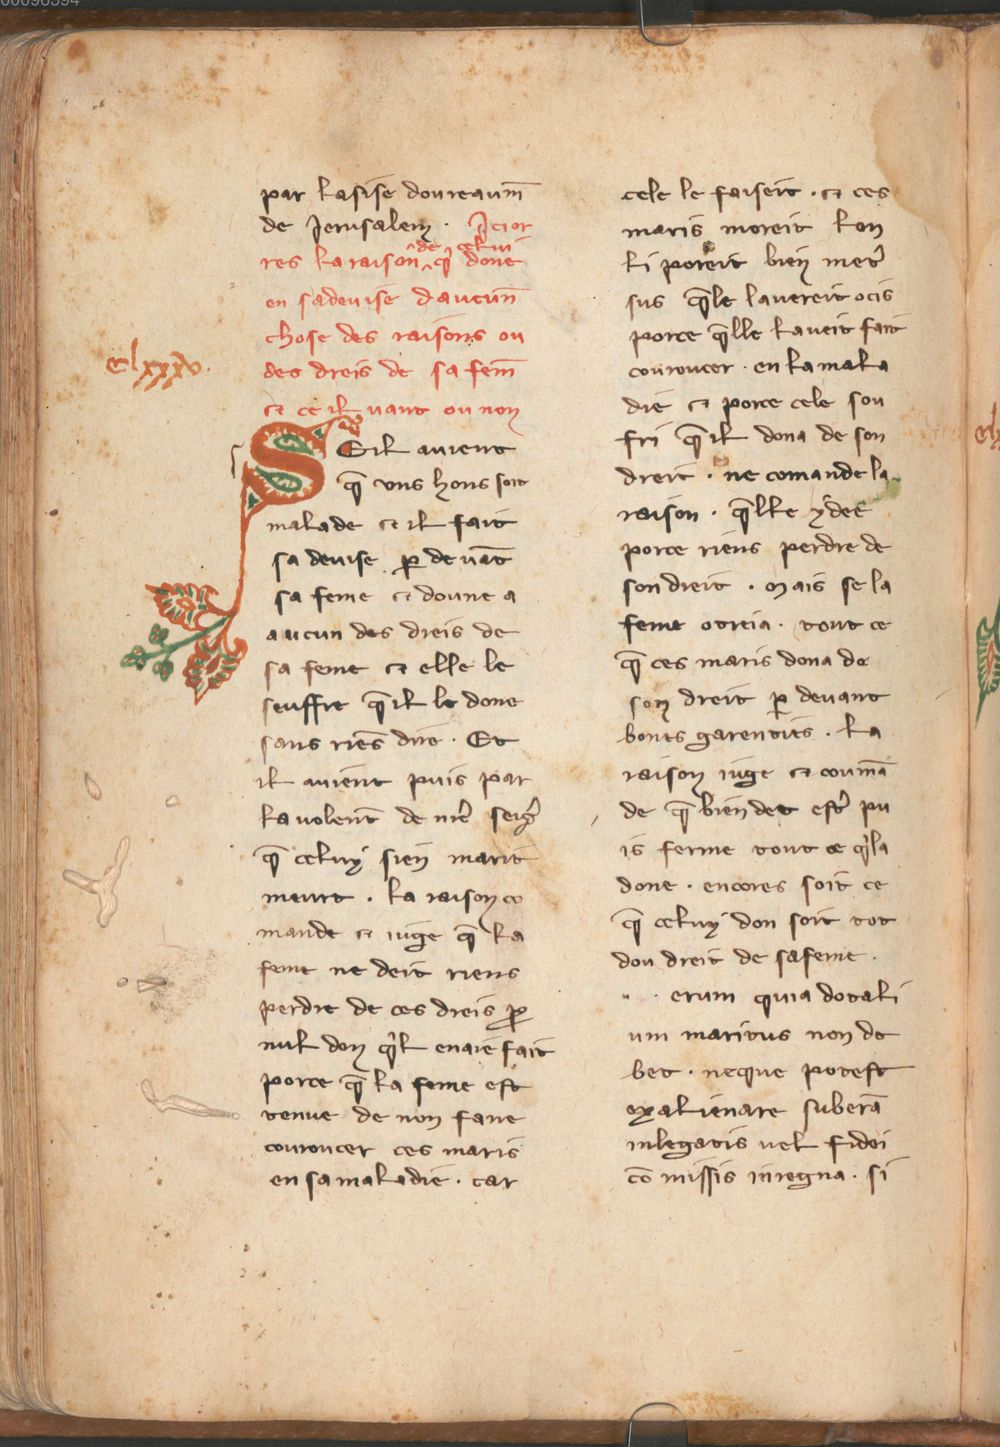 par lasise doureaum̄
de Jerusalem · Jcior
res la raison de celui q̄ done
en sa deuise daucun̄
chose des raisons ou
des dreis de sa fem̄
⁊ ce il uaut ou non
clxxxv.
SEil auient
q̄ uns hons soit
malade ⁊ il fait
sa deuise ꝑ deuāt
sa feme ⁊ doune a
aucun des dreis de
sa feme ⁊ elle le
seuffre q̄ il le done
sans riēs dire · Et
il auient puis par
la volent̄ de nr̄e seiḡr
q̄ celuy sien marit
meurt · la raison co
mande ⁊ iuge q̄ la
feme ne deit riens
perdre de ces dreis ꝑ
nul don q̄l en aie fait
porce q̄ la feme est
tenue de non faire
couroucer ces maris
en sa maladie · car
cele le faiseit · ⁊ ces
maris moreit lon
li poreit bien metr̄
sus q̄le lauereit ocis
porce q̄lle laueit fait
couroucer · en la mala
die ⁊ porce cele sou
fri q̄ il dona de son
dreit · ne comande la
raison · q̄lle y dee
porce riens perdre de
son dreit · Mais se la
feme otreia · tout ce
q̄ ces maris dona de
son dreit ꝑ deuant
bones garenties · la
raison iuge ⁊ coumā
de q̄ bien det estr̄ pu
is ferme tout ce q̄la
done · encores soit ce
q̄ celuy don soit tot
dou dreit de sa feme ·
erum quia dotali
um maritus non de
bet · neque potest
exalienare suberā
inlegatis uel fidei
cō missis inregna · si